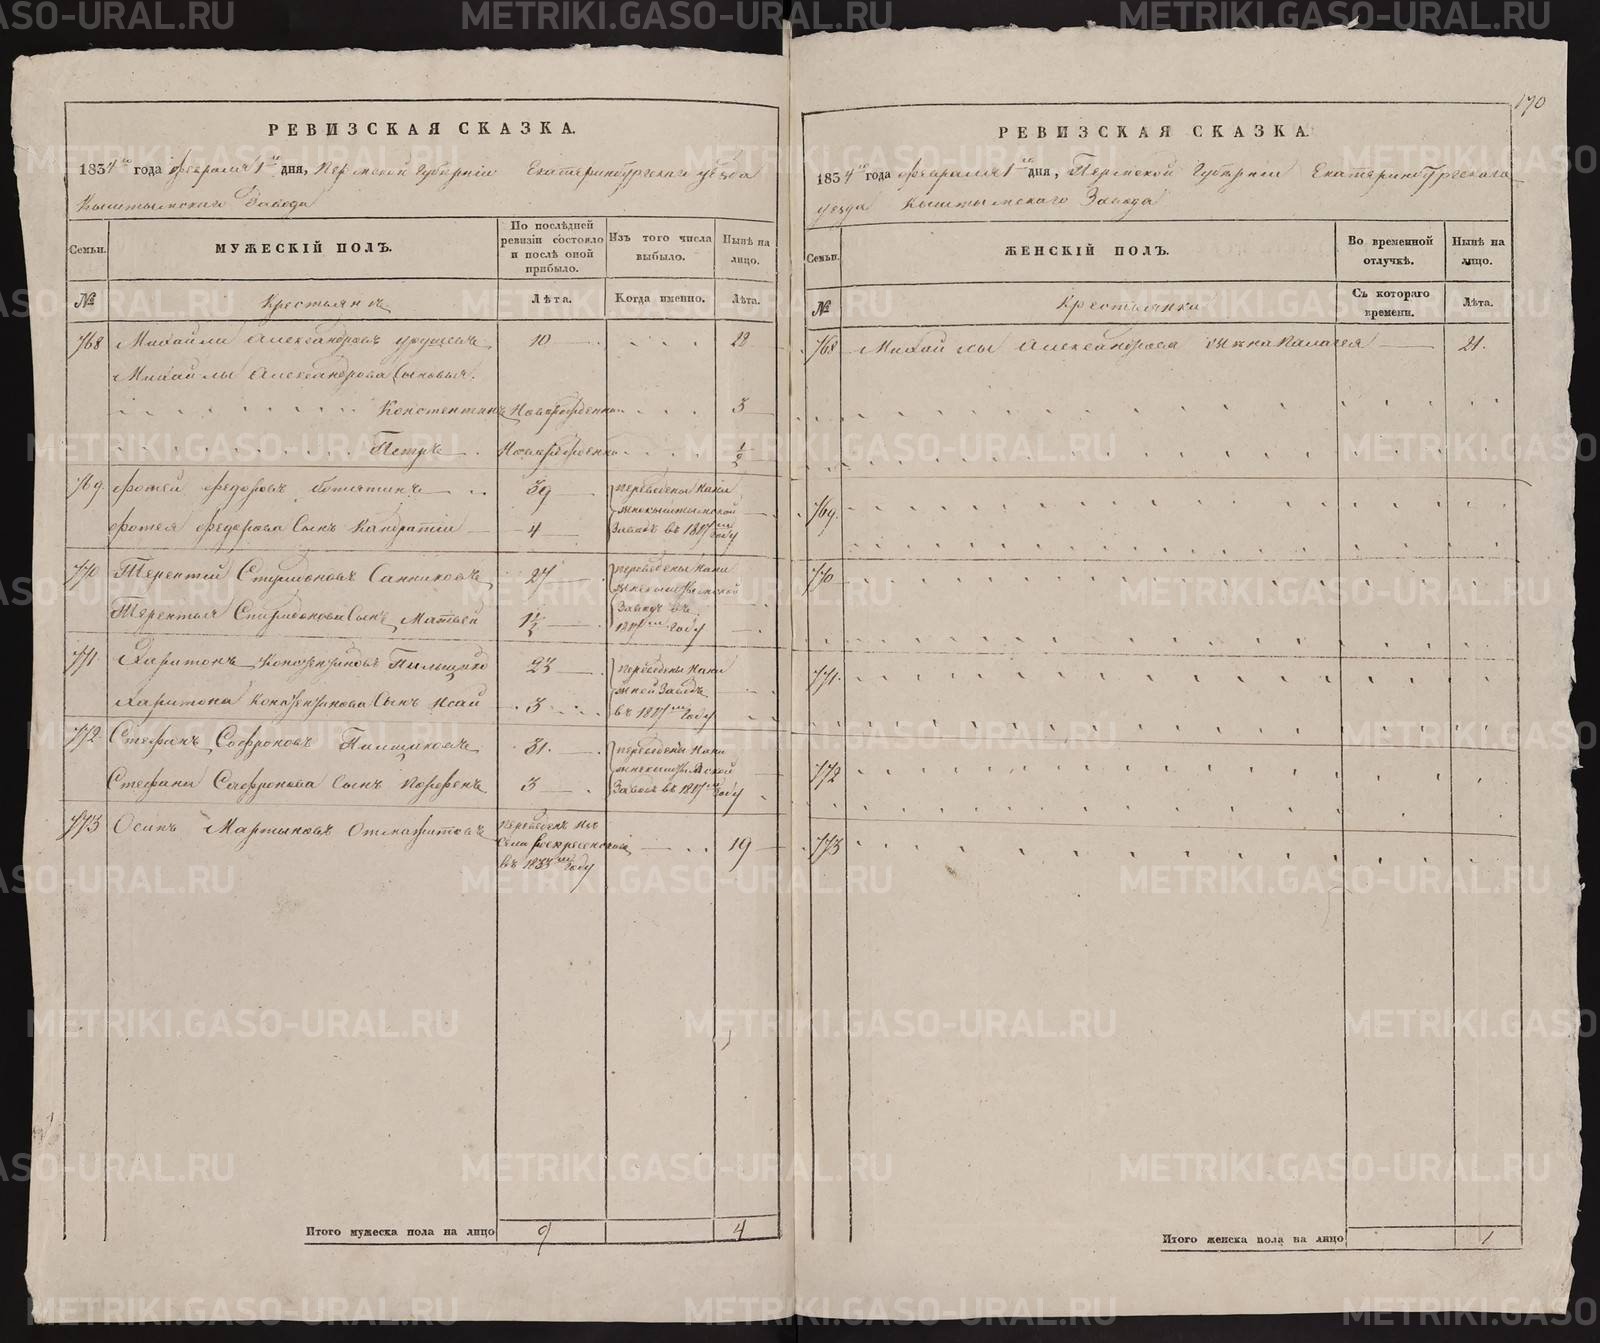 170
РЕВИЗСКАЯ СКАЗКА.
1834го года февраля 1го дня, Пермской Губерніи Екатеринбургскаго уезда
Кыштымскаго Завода
Семьи.
МУЖЕСКІЙ ПОЛЪ.
По послѣдней ревизіи состояло и послѣ оной прибыло.
Изъ того числа выбыло.
Нынѣ на лицо.
№
Крестьянъ
Лѣта.
Когда именно.
Лѣта.
768 Михайли Александровъ 10 22
Михайлы Александрова Сыновья.
Констентинъ Новорожденной 3
Петръ Новорожденной 1/2
769. Фотей Федоровъ 39 переведены На Ни
жнекыштымской
Фотея Федорова Сынъ Кандратій 4 Заводъ въ 1817м году
770 Терентей Спиридоновъ Санниковъ 27 переведены На Ни
жнекыштымской
Терентья Спиридонова Сынъ Матвей 1 1/2 Заводъ въ
1817м году
771 Харитонъ Констентиновъ Пильщико 23 переведены На Ни
жней Заводъ
Харитона Констентинова Сынъ Исай 3 въ 1817м году
772 Стефанъ Софроновъ Пилщиковъ 31 переведены На Ни
жнекыштымской
Стефана Софронова Сынъ Парфенъ 3 Заводъ въ 1817м году
773 Осипъ Мартыновъ переведенъ Из 19
Села Воскресенскаго
въ 1833м году
Итого мужеска пола на лицо 9 4
РЕВИЗСКАЯ СКАЗКА
1834го года февраля 1го дня, Пермской Губерніи Екатеринбургскаго
уезда Кыштымскаго Завода
Семьи.
ЖЕНСКІЙ ПОЛЪ.
Во временной отлучкѣ.
Нынѣ на лицо.
№
Крестьянки
Съ котораго времени.
Лѣта.
768 Михайлы Александрова жена Палагея 21.
769.
770
771.
772
773
Итого женска пола на лицо 1
METRIKI.GASO-URAL.RU